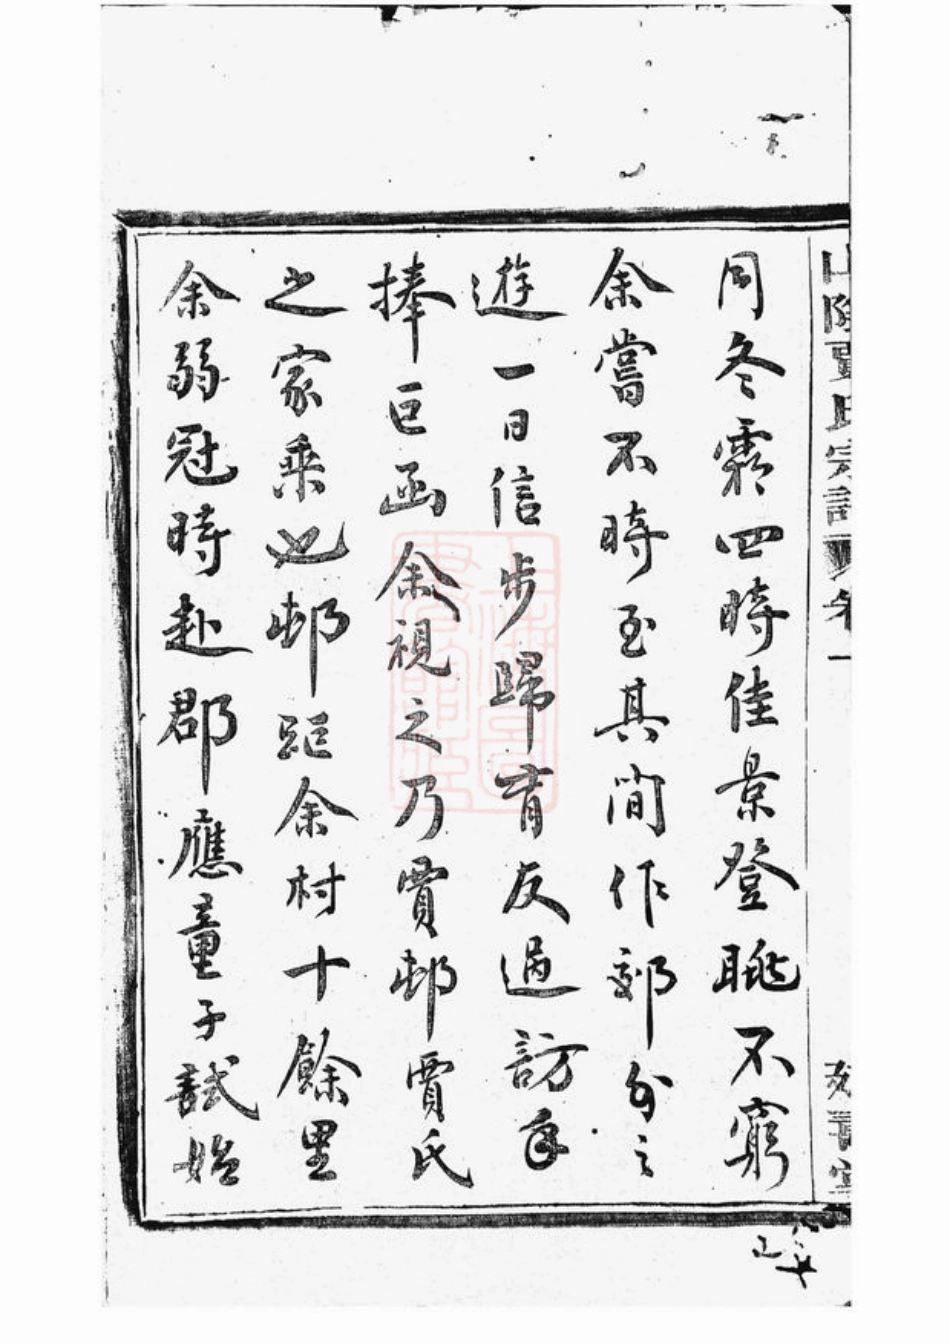 山陰賈氏宗譜 卷一
月冬霜四時佳景登眺不窮
余嘗不時至其間作郊外之
遊一日信步歸有友過訪手
捧巨函余視之乃賈邨賈氏
之家乘也邨距余村十餘里
余弱冠時赴郡應童子試始